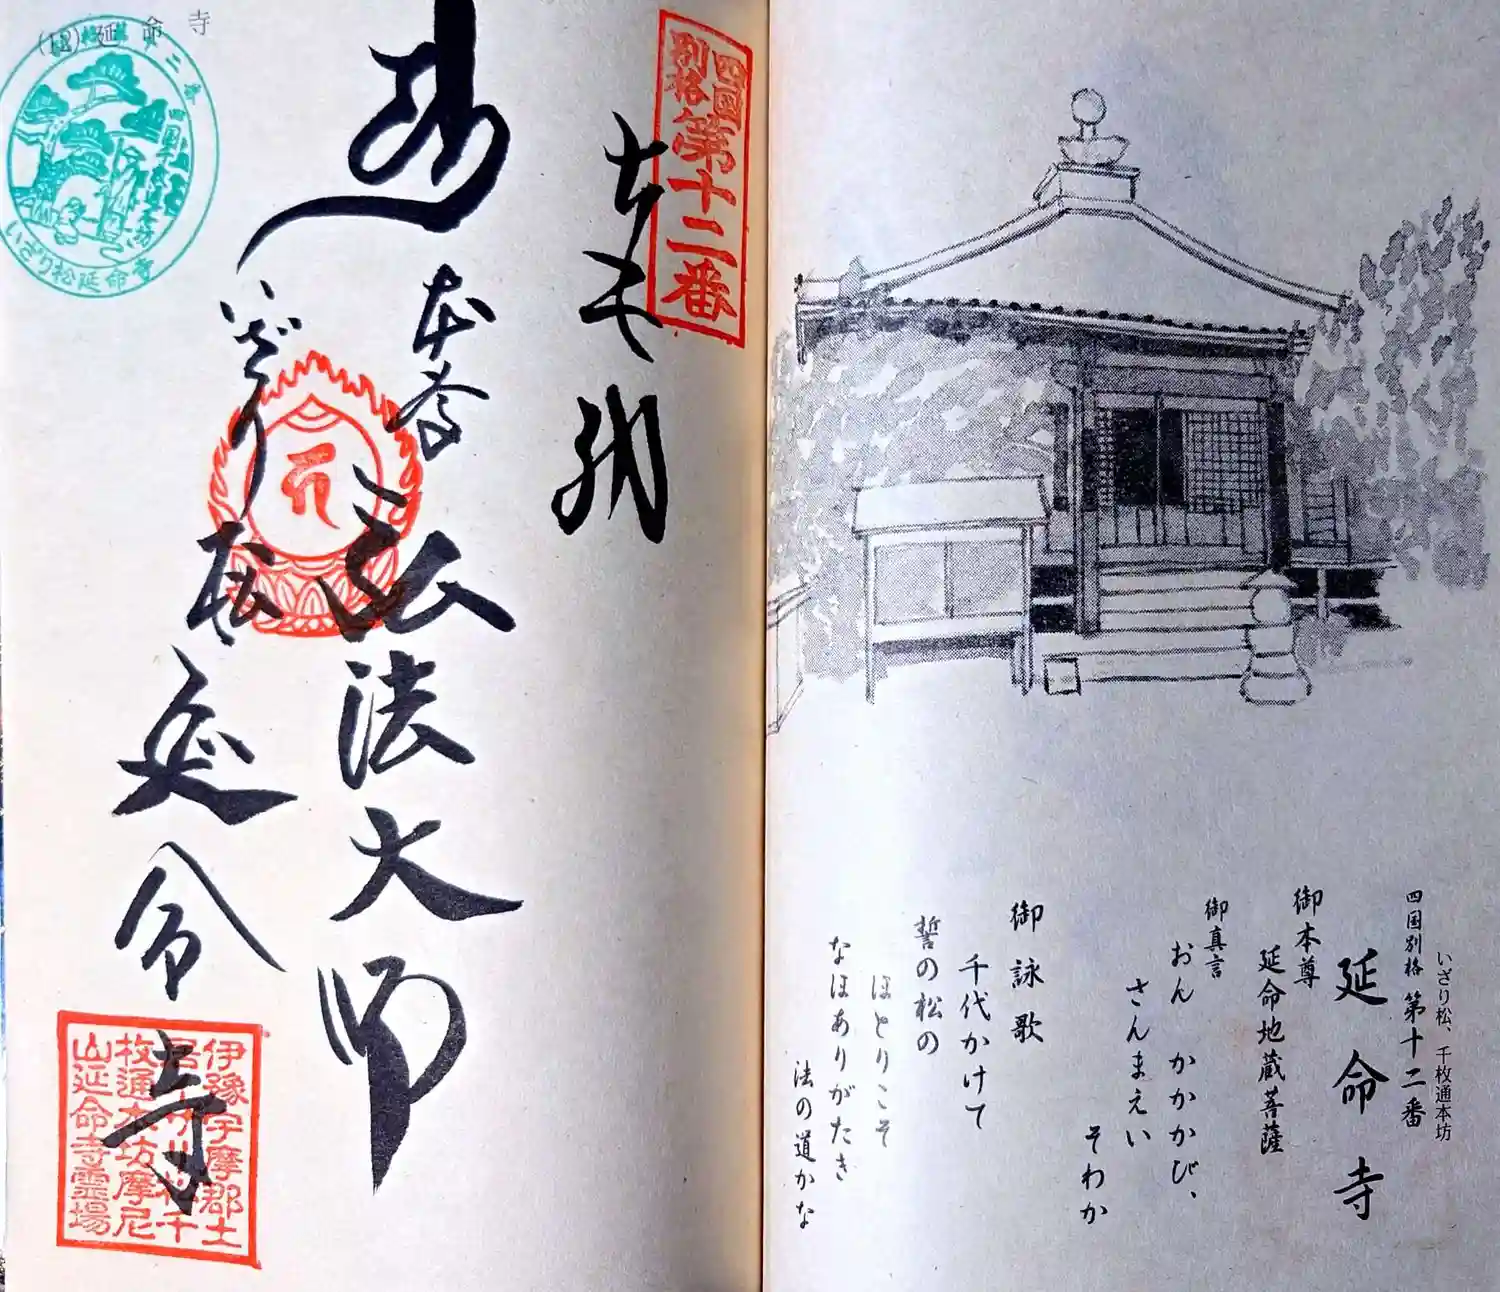 いざり松、千枚通本坊
四国別格 第十二番
延命寺
御本尊
延命地蔵菩薩
御真言
おん かかかび、
さんまえい
そわか
御詠歌
千代かけて
誓の松の
ほとりこそ
なほありがたき
法の道かな
四国
別格
第十二番
本尊
弘法大師
いざり松
延命寺
伊豫宇摩郡土
居いざり松千
枚通本坊摩尼
山延命寺霊場
(12) 延命寺
いざり松延命寺